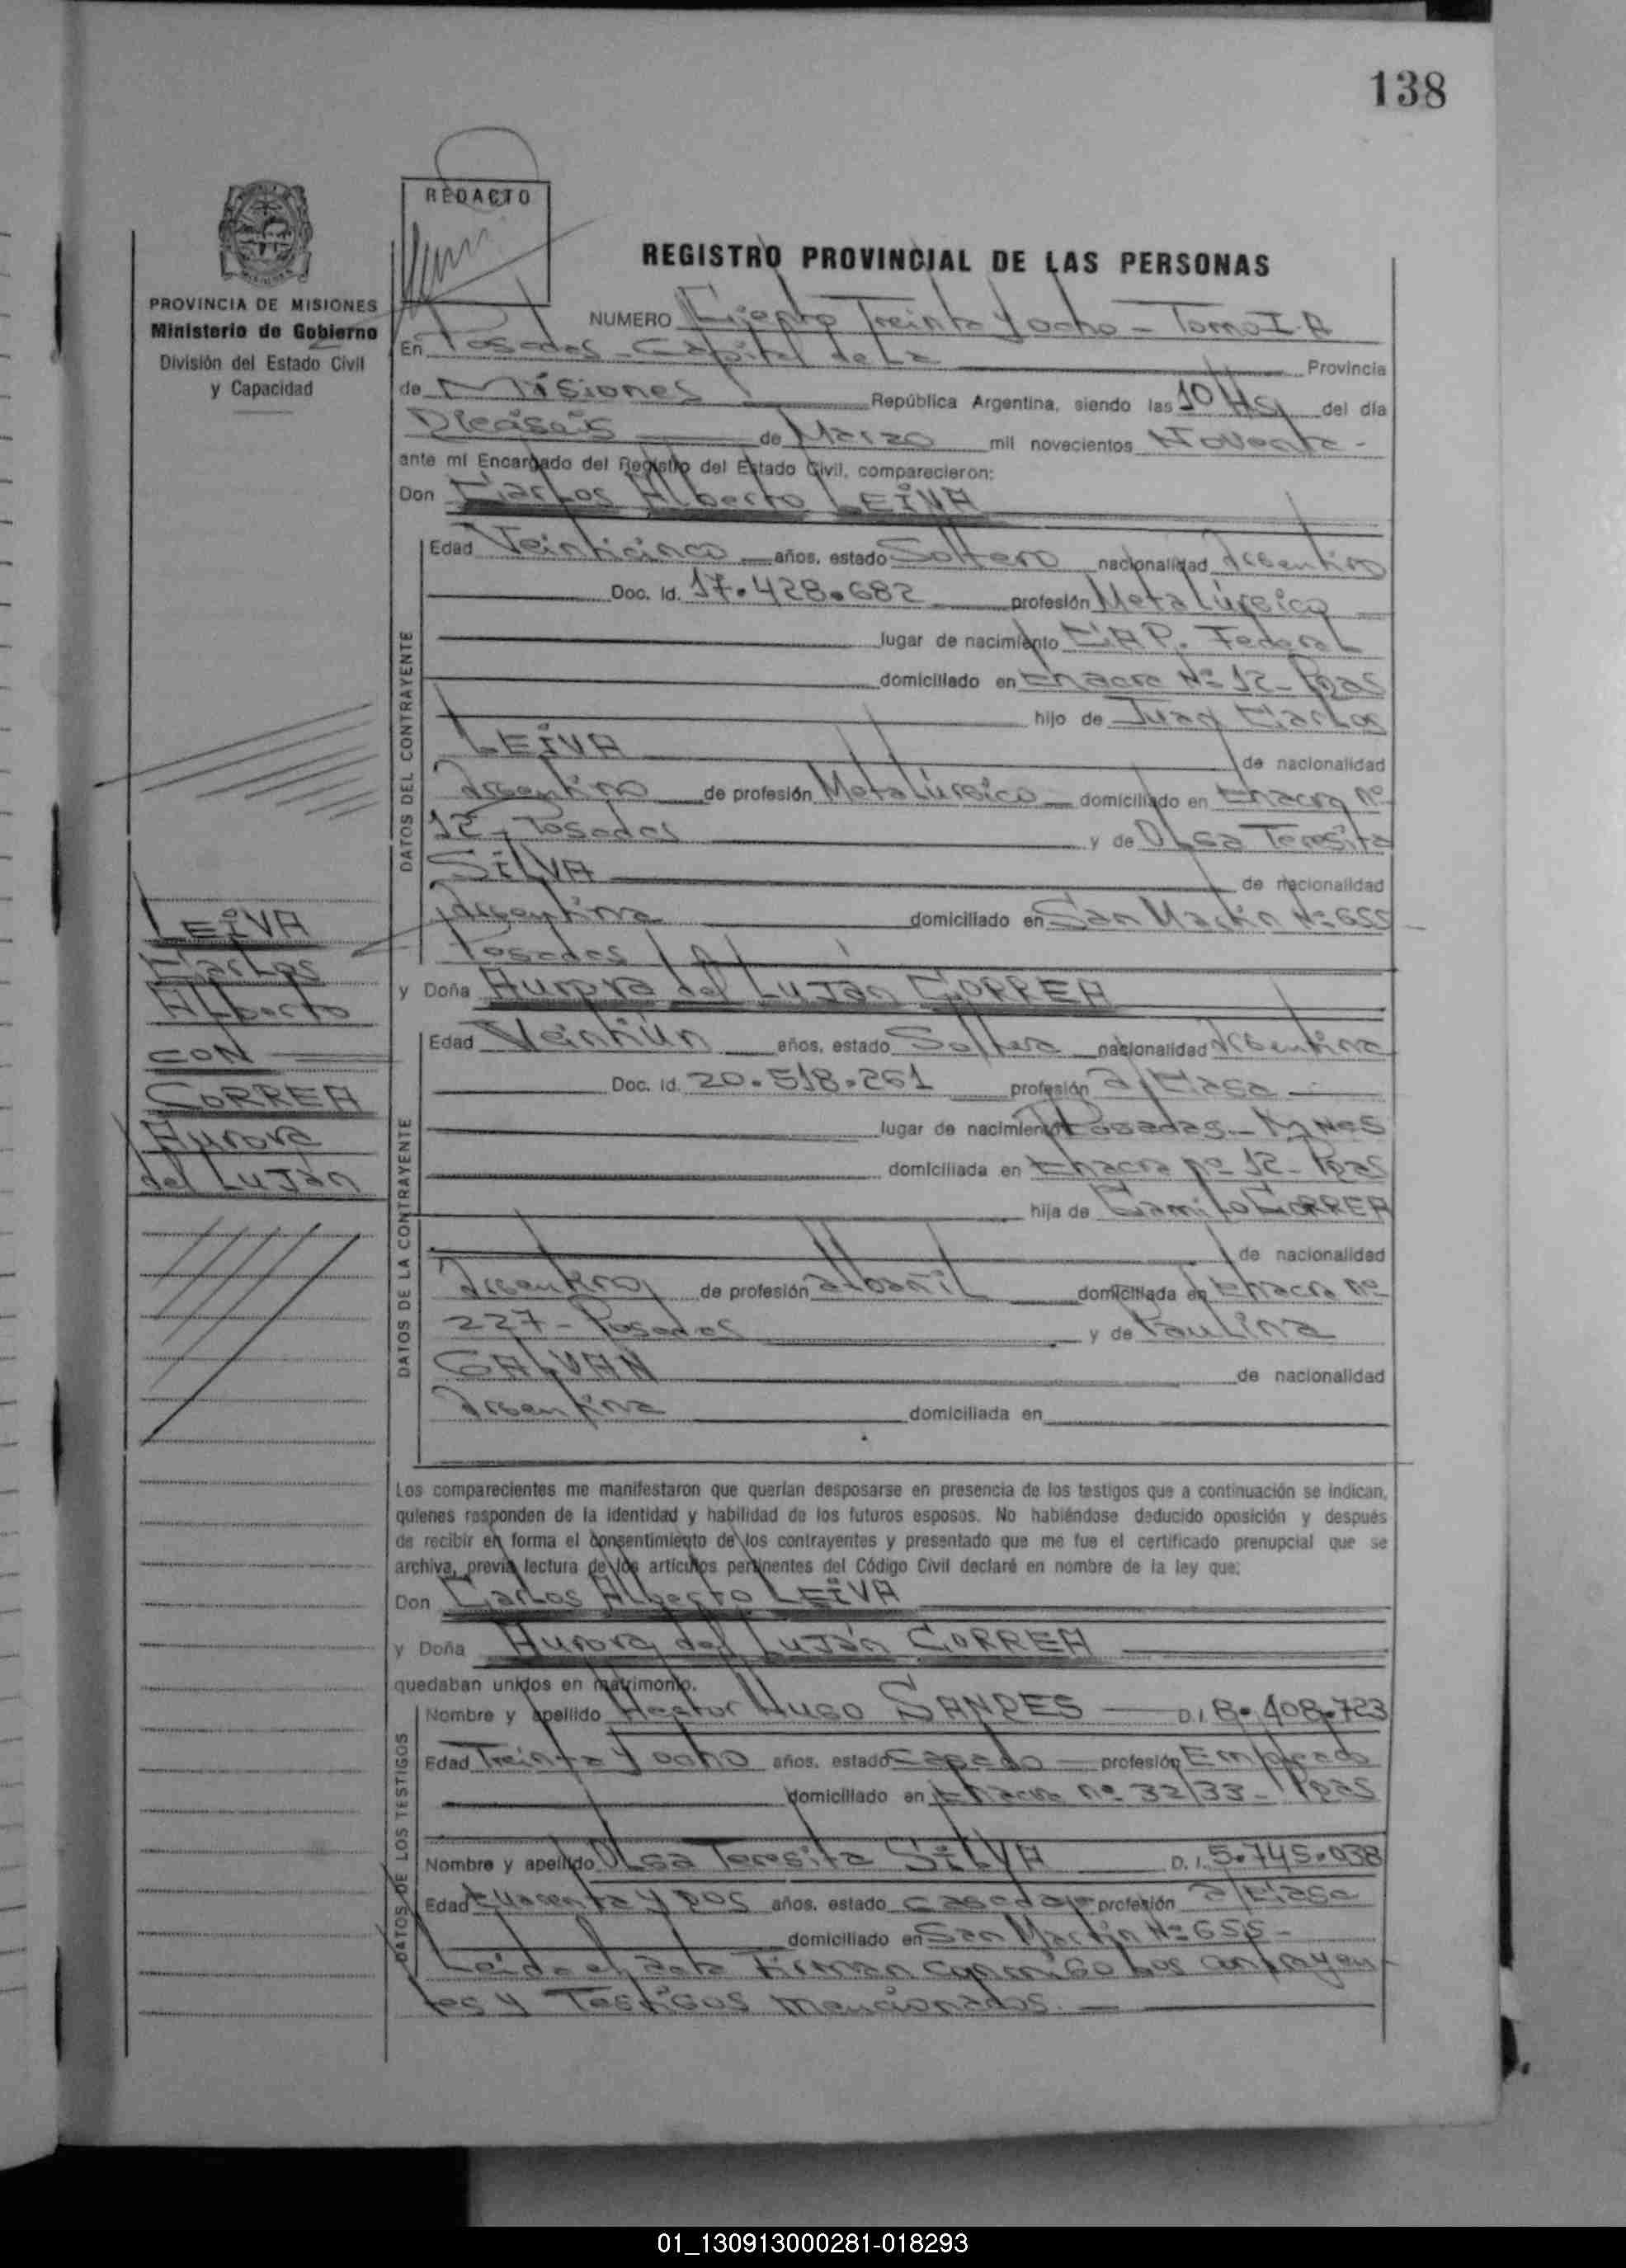 138
REDACTO
REGISTRO PROVINCIAL DE LAS PERSONAS
PROVINCIA DE MISIONES
Ministerio de Gobierno
División del Estado Civil
y Capacidad
NUMERO Ciento Treinta y ocho - Tomo I-A
En Posadas - Capital de La Provincia
de Misiones República Argentina, siendo las 10 Hs del día
Dieciseis de Marzo mil novecientos Noventa -
ante mí Encargado del Registro del Estado Civil, comparecieron:
Don Carlos Alberto LEIVA
DATOS DEL CONTRAYENTE
Edad Veinticinco años, estado Soltero nacionalidad Argentino
Doc. Id. 17.428.682 profesión Metalúrgico
lugar de nacimiento CAP. Federal
domiciliado en Chacra Nº 12 - Pdas
hijo de Juan Carlos
LEIVA de nacionalidad
Argentino de profesión Metalúrgico domiciliado en Chacra Nº
12 - Posadas y de Olga Teresita
SILVA de nacionalidad
Argentina domiciliado en San Martín Nº 655
Posadas
LEIVA
Carlos
Alberto
CON
CORREA
Aurora
del Luján
y Doña Aurora del Luján CORREA
DATOS DE LA CONTRAYENTE
Edad Veintiún años, estado Soltera nacionalidad Argentina
Doc. Id. 20.518.261 profesión a/casa
lugar de nacimiento Posadas - Mnes
domiciliada en Chacra nº 12 - Pdas
hija de Camilo CORREA
de nacionalidad
Argentino de profesión albañil domiciliada en Chacra Nº
227 - Posadas y de Paulina
GALVAN de nacionalidad
Argentina domiciliada en
Los comparecientes me manifestaron que querían desposarse en presencia de los testigos que a continuación se indican,
quienes responden de la identidad y habilidad de los futuros esposos. No habiéndose deducido oposición y después
de recibir en forma el consentimiento de los contrayentes y presentado que me fue el certificado prenupcial que se
archiva, previa lectura de los artículos pertinentes del Código Civil declaré en nombre de la ley que:
Don Carlos Alberto LEIVA
y Doña Aurora del Luján CORREA
quedaban unidos en matrimonio.
DATOS DE LOS TESTIGOS
Nombre y apellido Hector Hugo D.I. 8.408.723
Edad Treinta y ocho años, estado Casado profesión Empleado
domiciliado en Chacra nº 32/33 - Pdas
Nombre y apellido Olga Teresita SILVA D.I. 5.745.038
Edad Cuarenta y Dos años, estado casada profesión a/casa
domiciliado en San Martín Nº 655 -
Leída el acta Firman conmigo Los contrayen
tes y Testigos mencionados. -
01_130913000281-018293